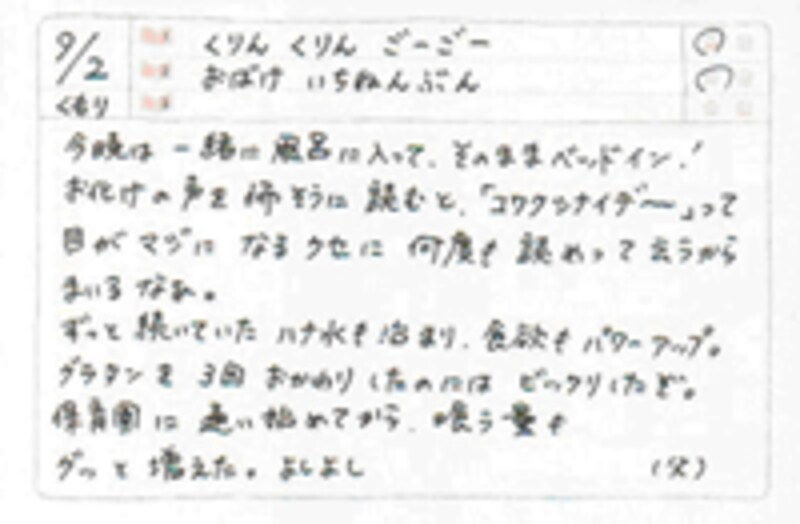 9/2
くもり
くりん くりん ごーごー
おばけ いちねんぶん
今晩は 一緒に 風呂に入って、そのままベッドイン!
お化けの 声を 怖そうに 読むと、「コワクシナイデ〜」って
目が マジに なるクセに 何度も 読めって 云うから
まいるなぁ。
ずっと 続いていた ハナ水も 治まり、食欲も パワーアップ。
グラタンを 3回 おかわり したのには ビックリしたぞ。
保育園に 通い始めてから、喰う量も
グッと 増えた。よしよし (父)